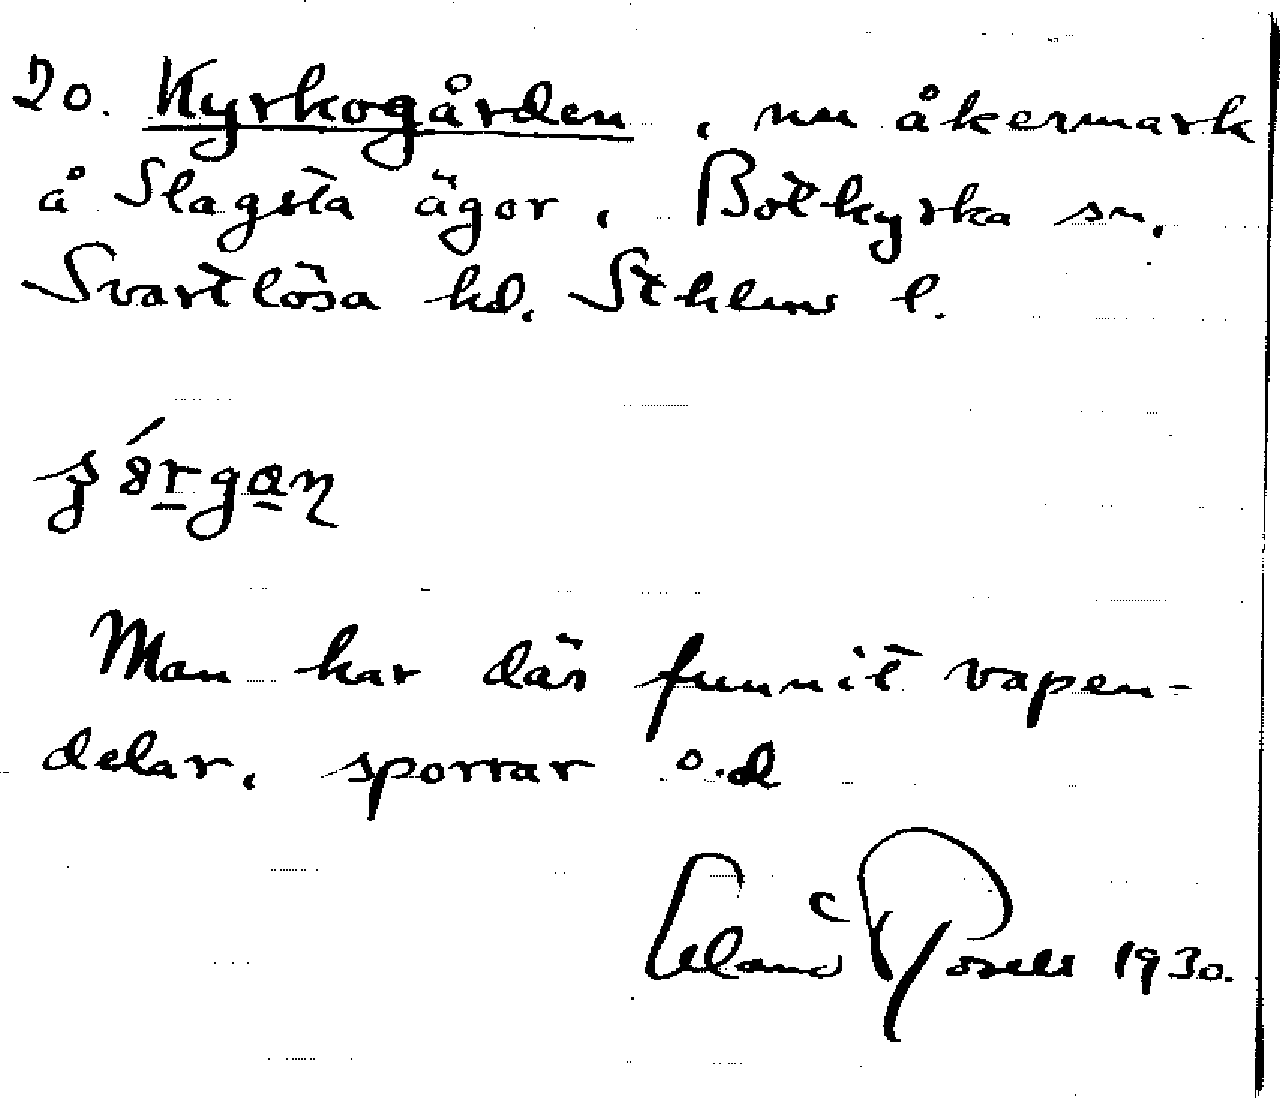 20. Kyrkogården, nu åkermark
å Slagsta ägor, Botkyrka sn.
Svartlösa hd. Sthlms l.
Man har där funnit vapen-
delar, sporrar o.d
Erland Rosell 1930.